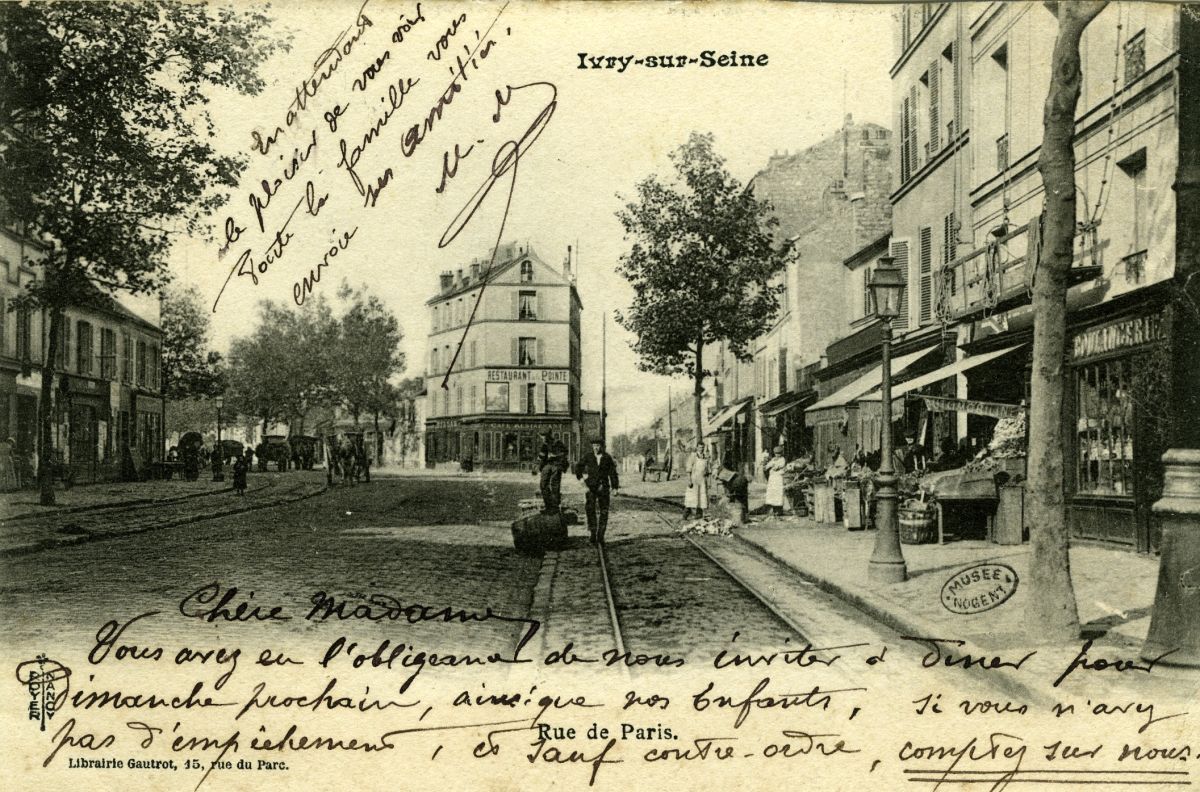 Ivry-sur-Seine
RESTAURANT DE LA POINTE
CAFÉ RESTAURANT
BOULANGERIE
MUSEE
NOGENT
Chère Madame
Vous avez eu l'obligeance de nous inviter à diner pour
dimanche prochain, ainsique nos Enfants, si vous n'avez
pas d'empêchement, et sauf contre-ordre, comptez sur nous.
En attendant
le plaisir de vous voir
Toute la famille vous
envoie ses amitiés.
M. M
Rue de Paris.
ROYER
NANCY
Librairie Gautrot, 15, rue du Parc.